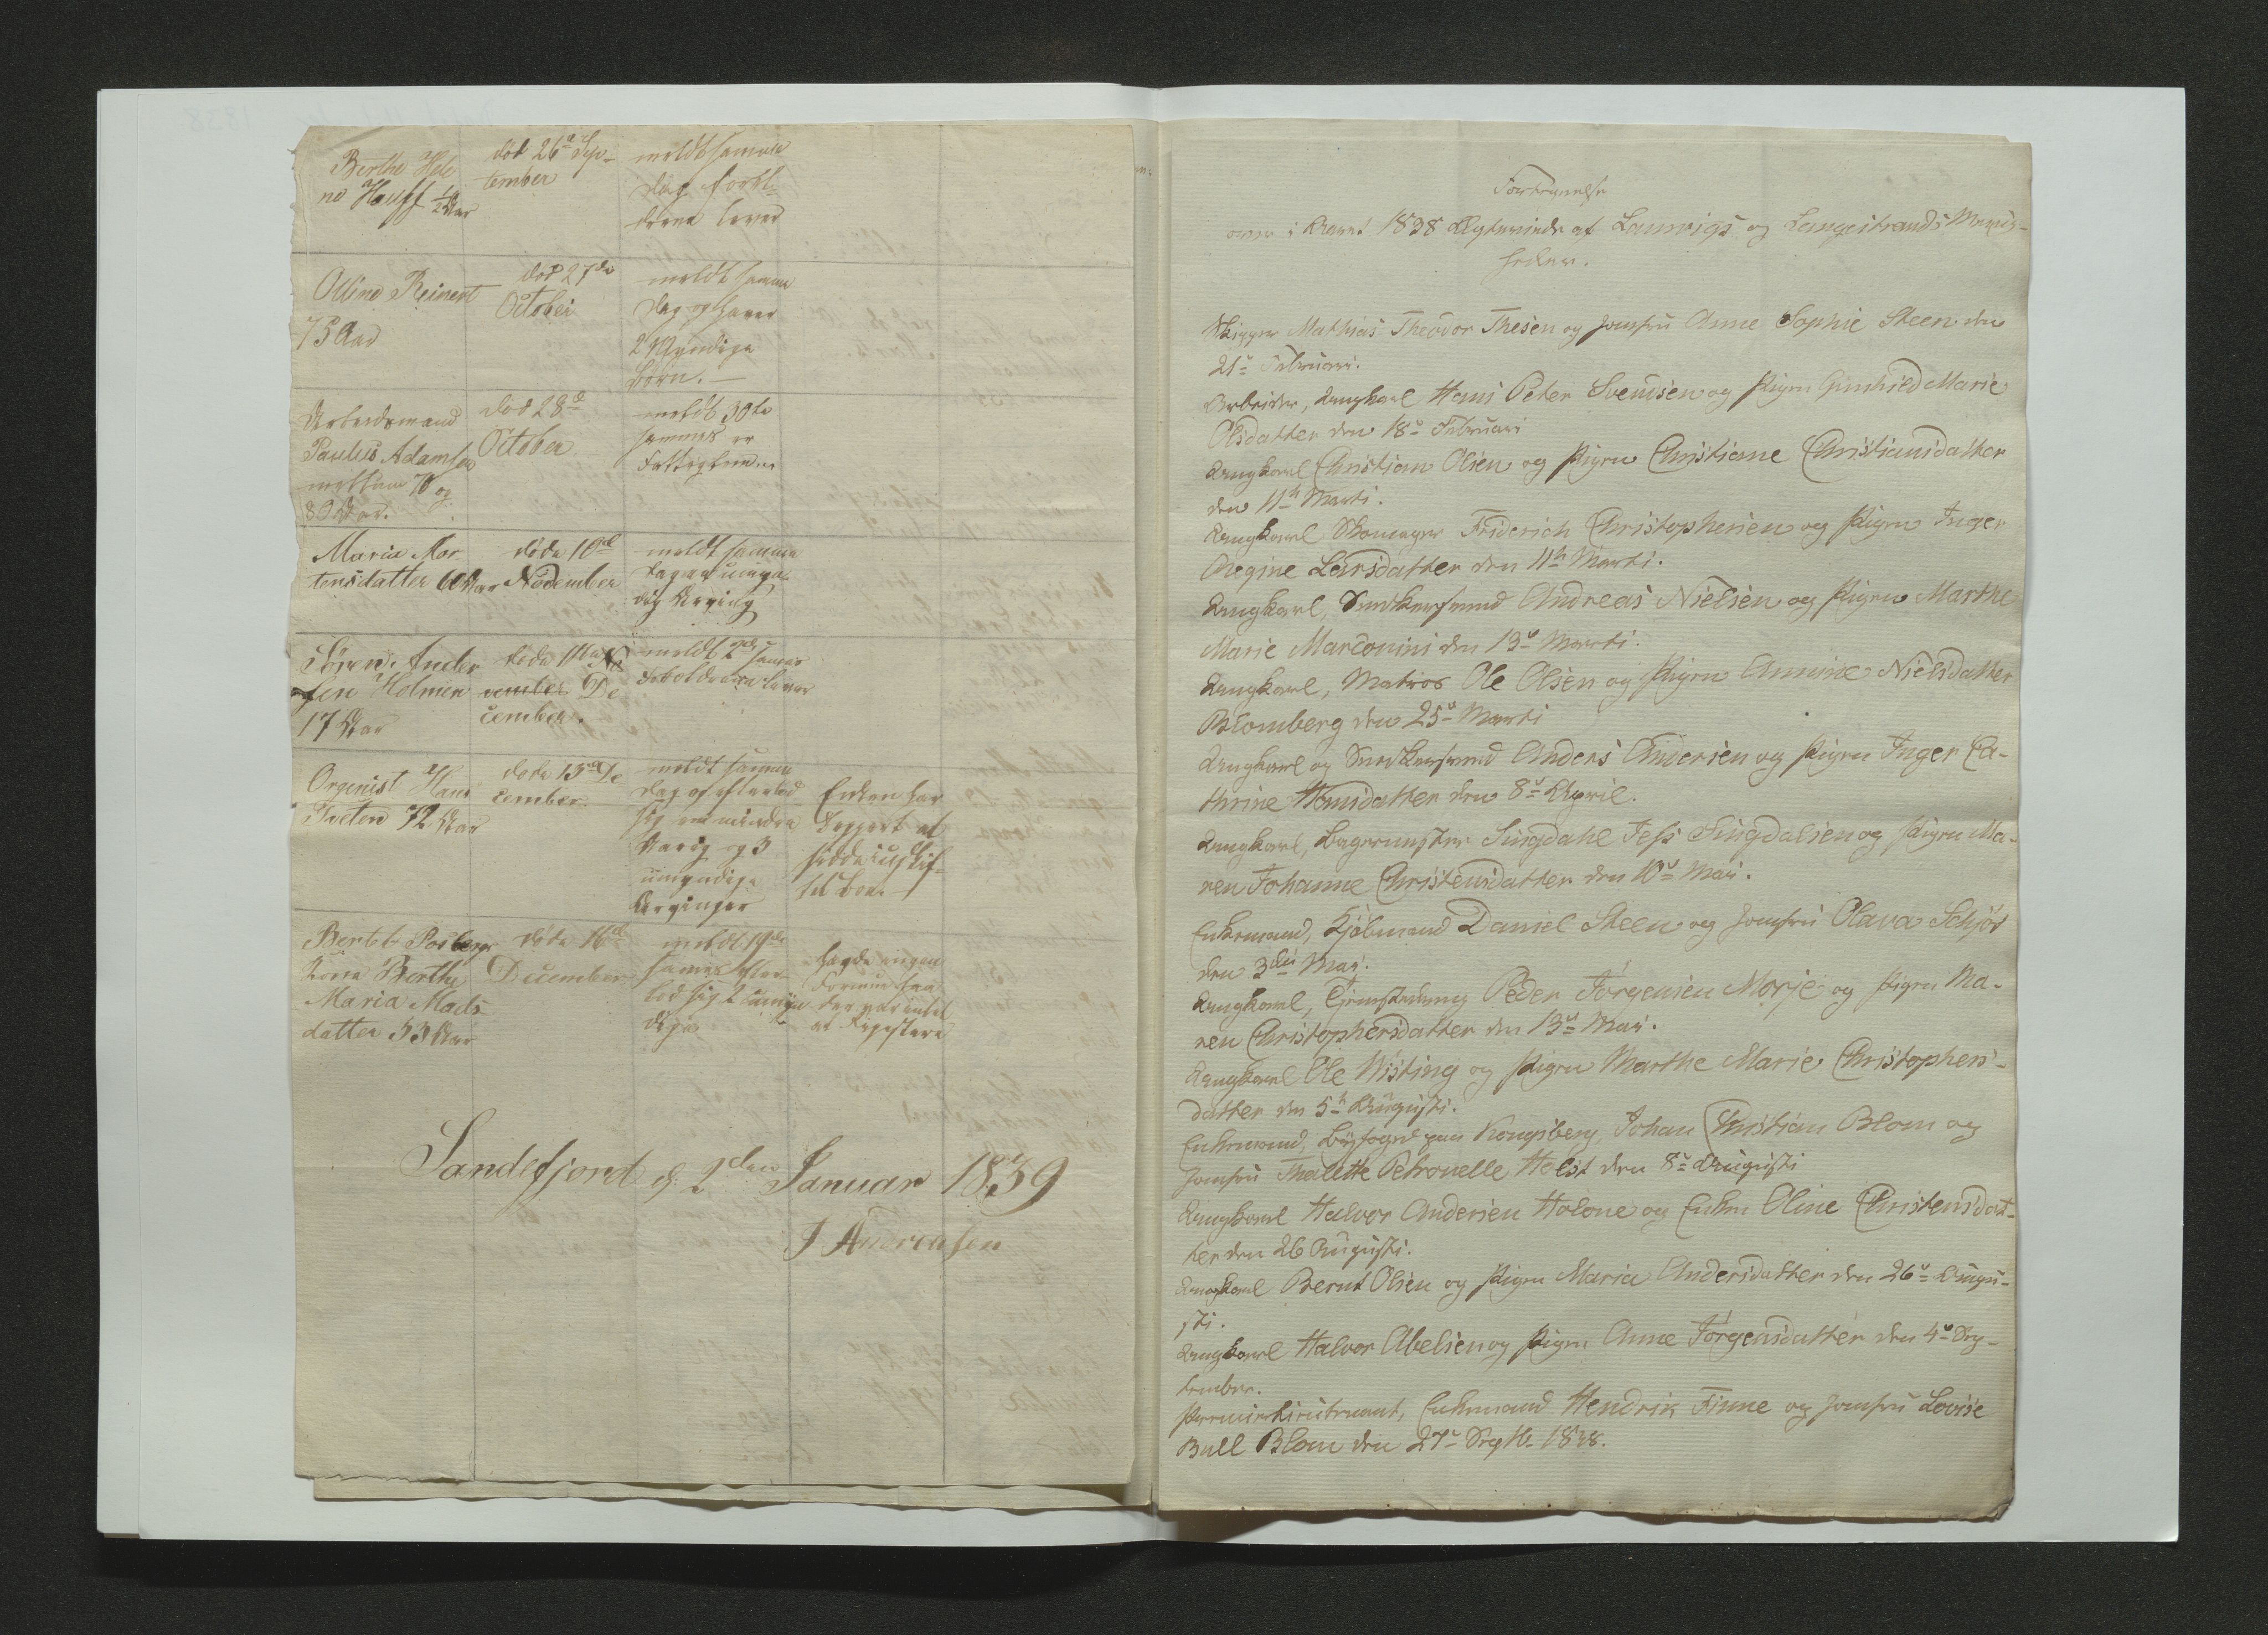 Berthe Hele
ne Hauff 1/2 Aar
död 26de Sep-
tember
meldt samme
Dag Foræl-
drene lever
Olline Reinert
75 Aar
död 27de
October
meldt samme
Dag og haver
2 Myndige
börn. —
Arbeidsmand
Paulus Adamsen
mellem 70 og
80 Aar.
död 28de
October
meldt 30te
sammes er
Fattiglem
Maria Mor
tensdatter 60 Aar
döde 10de
November
meldt samme
Dag
Arving
Sören Ander
sen Holmen
17 Aar
döde 11te No
vember De
cember.
meldt samme
lever
Organist Hans
Tveten 72 Aar
döde 13de De
cember
meldt samme
Dag og efterlod
sig en mindre
Aarig og 3
umyndige
Arvinger
Enken har
at
sidde i uskif-
tet boe.
Bertel
kone Berthe
Maria Mads
datter 53 Aar
döde 16de
December
meldt 19de
sammes efter-
lod sig 2 umyn
dige
havde ingen
Formue saa
der var intet
at Registere
Sandefjord d. 2den Januar 1839
J Andersen
Fortegnelse
over i Aaret 1838 Ægteviede af Laurvigs og Langestrands Menig-
heder.
Skipper Mathias Theodor Thesen og Jomfru Anne Sophie Steen den
21de Februari.
Arbeider, Ungkarl Hans Peter Svendsen og Pigen Gunhild Marie
Olsdatter den 18de Februari
Ungkarl Christian Olsen og Pigen Christiane Christiansdatter
den 11te Marti.
Ungkarl Skomager Friderich Christophersen og Pigen Inger
Regine Larsdatter den 11te Marti.
Ungkarl, Snedkersvend Andreas Nielsen og Pigen Marthe
Marie Marconini den 13de Marti.
Ungkarl, Matros Ole Olsen og Pigen Annine Nielsdatter
Blomberg den 25de Marti
Ungkarl og Snedkersvend Anders Andersen og Pigen Inger Ca-
thrine Hansdatter den 8de April.
Ungkarl, Bagermester Singdahl Jess Singdalsen og Pigen Ma-
ren Johanne Christensdatter den 10de Mai.
Enkemand, Kjöbmand Daniel Steen og Jomfru Olava Schjöt
den 3die Mai.
Ungkarl, Tjenestedreng Peder Jörgensen Morje og Pigen Ma-
ren Christophersdatter den 13de Mai.
Ungkarl Ole Wisting og Pigen Marthe Marie Christophers-
datter den 5te Augusti.
Enkemand, Byfoged paa Kongsberg, Johan Christian Blom og
Jomfru Thalette Petronelle Holst den 8de Augusti
Ungkarl Halvor Andersen Holone og Enken Oline Christensdat-
ter den 26 Augusti.
Ungkarl Bernt Olsen og Pigen Maria Andersdatter den 26de Augu-
sti.
Ungkarl Halvor Abelsen og Pigen Anne Jörgensdatter den 4de Sep-
tember.
Premierlieutenant, Enkemand Hendrik Finne og Jomfru Lovise
Bull Blom den 27de Septb. 1838.